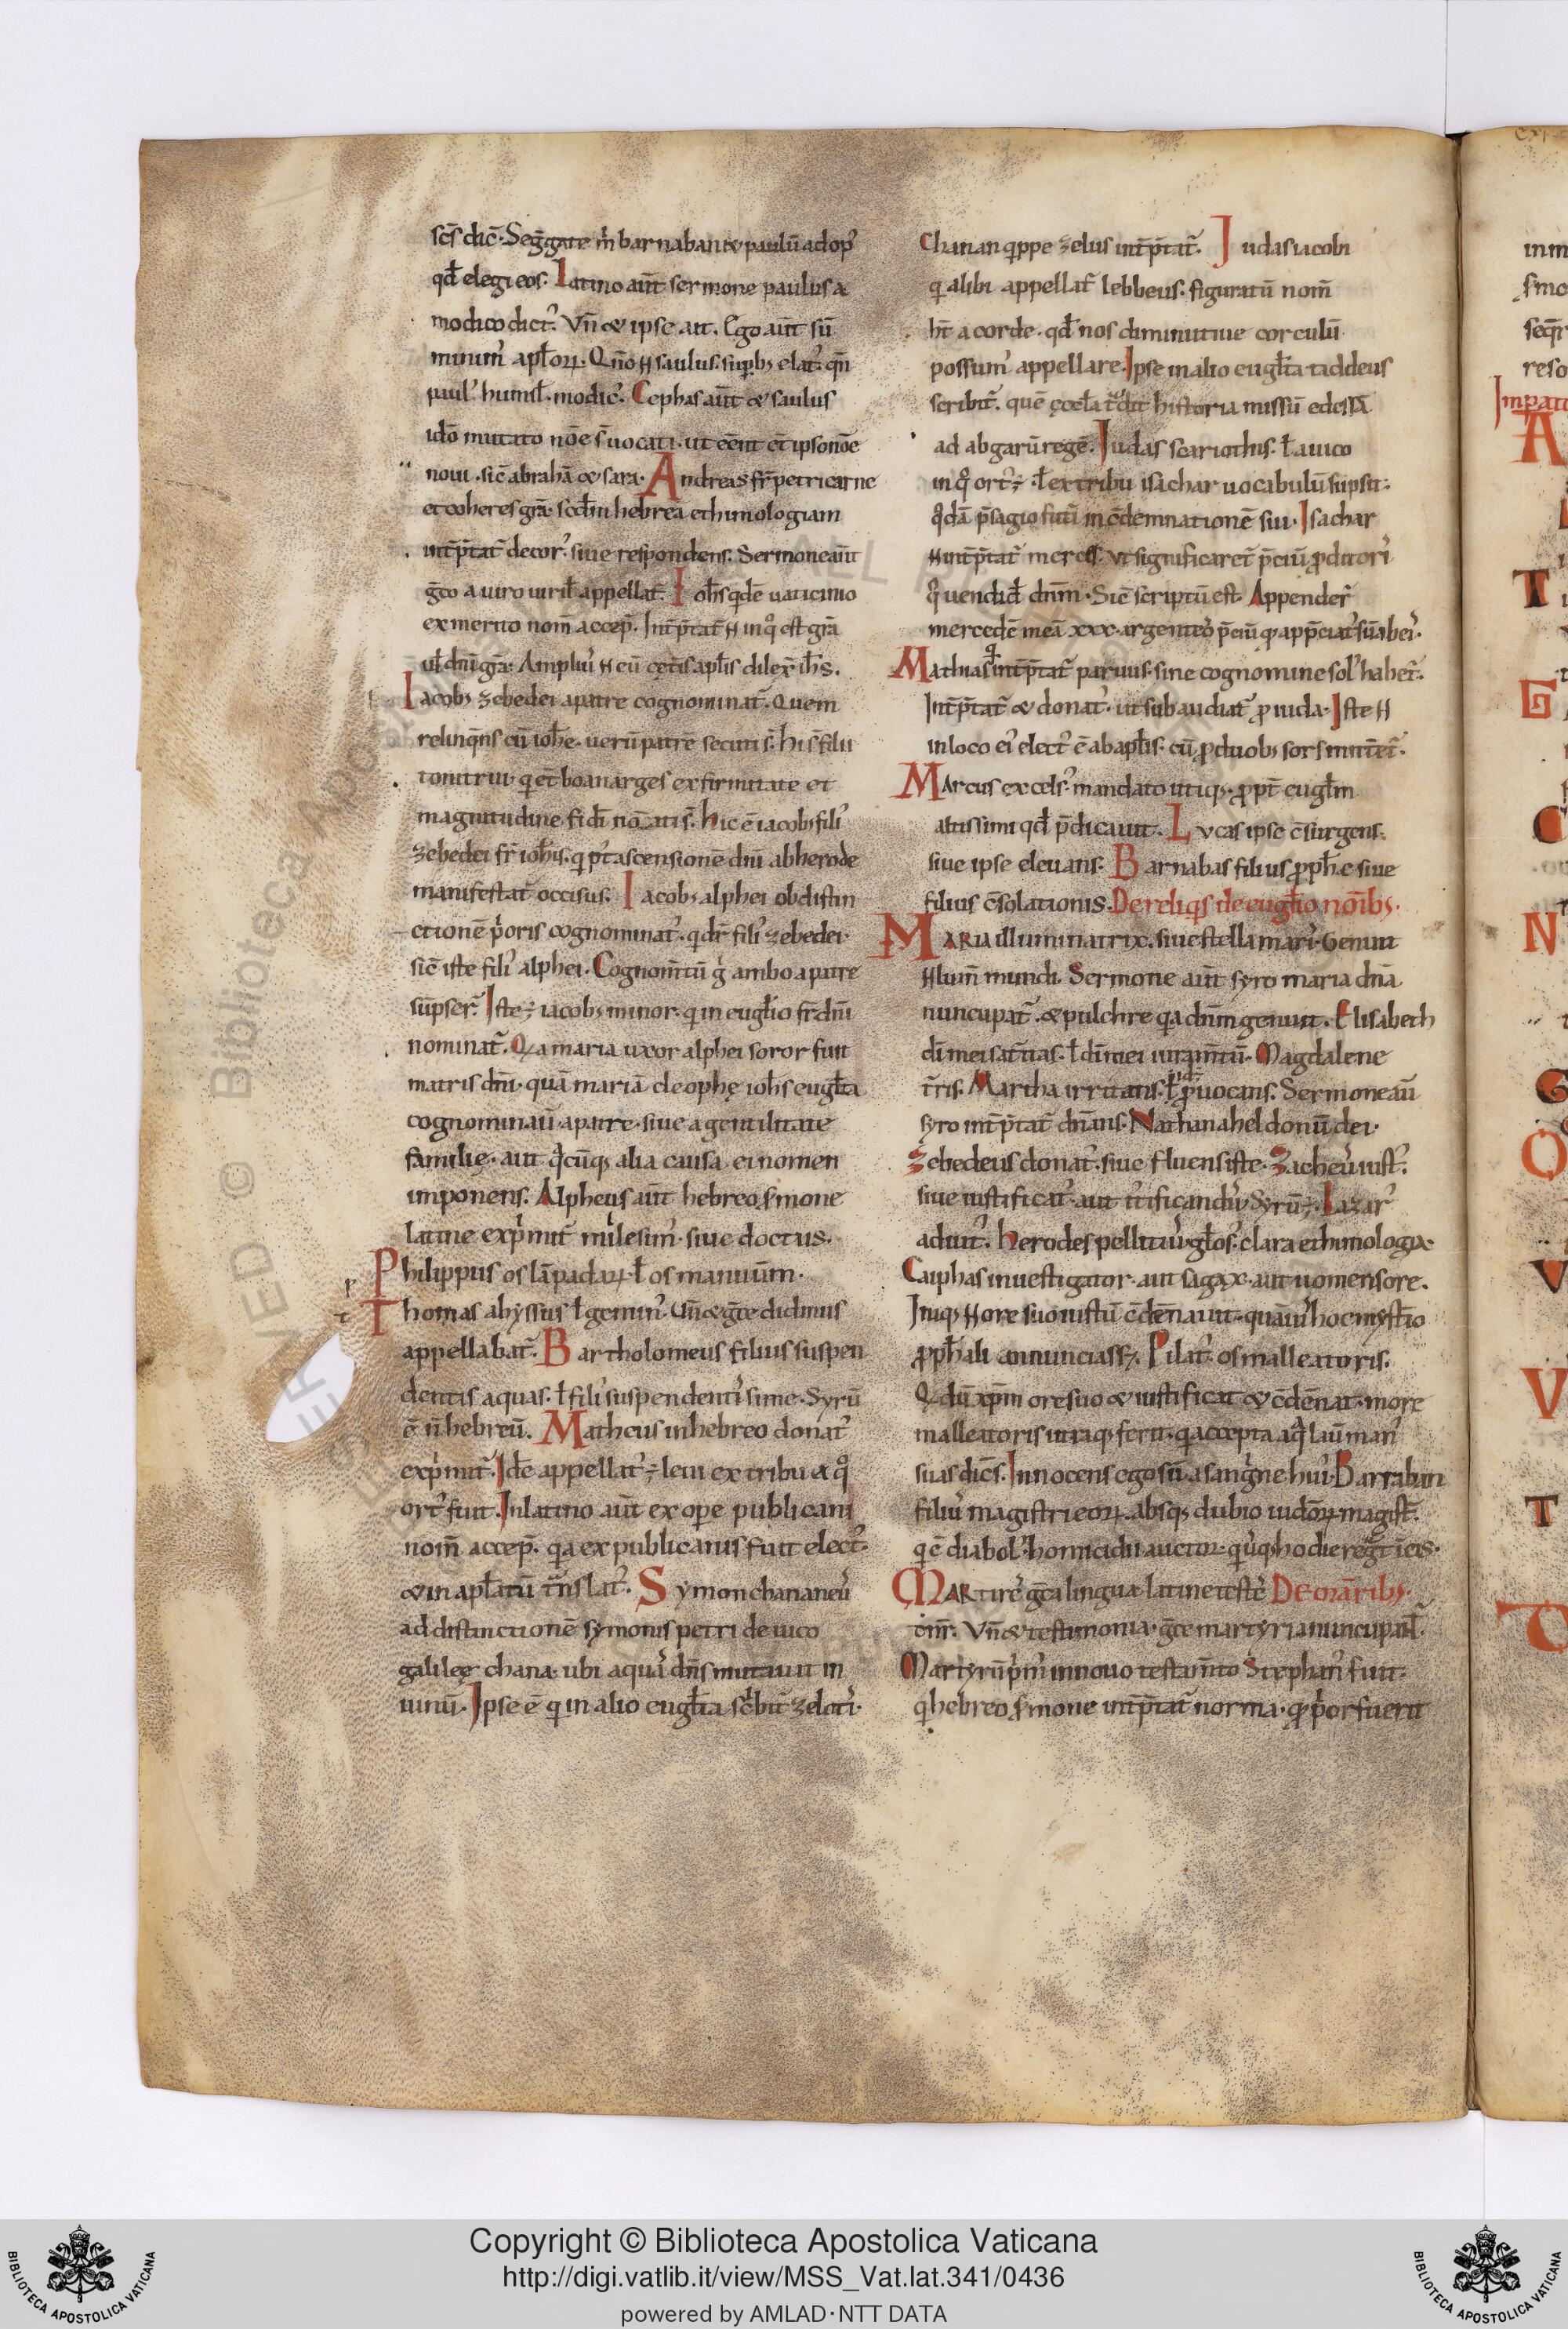 scs̄ dic̄. Seḡgate m̄ barnaban & paulū ad op᾽
qd̄ elegi eos. Latino aūt sermone paulus a
modico dict᾽. Vn̄ & ipse ait. Ego aūt sū
minim᾽ apl̄oꝝ. Qn̄o ƕ saulus. supbꝫ elat᾽. qn̄
paul᾽ humil̄. modic᾽. Cephas aūt & saulus
idō mutato nōe s̄ uocati. ut eēnt ēt ipso nōe
noui. sic̄ abrahā & sara. Andreas fr̄ petri carne
et coheres grā. scd̄m hebrea ethimologiam
int̄p̄tat̄ decor᾽. siue respondens. Sermone aūt
ḡco a uiro uiril̄ appellat̄. Ioh̄s qdē uaticinio
ex merito nom̄ accep̄. Int̄p̄tat̄ ƕ in qͦ est grā
ul̄ dn̄i grā. Ampliu᾽ ƕ eū cęt̄is apl̄is dilex̄ ih̄s.
Iacobꝫ zebedei a patre cognominat̄. Quem
relinqn̄s cū ioh̄e. uerū patrē secuti s̄. hi s̄ filii
tonitrui. q et boanarges ex firmitate et
magnitudine fidī nōati s̄. hic ē iacobꝫ fili᾽
zebedei fr̄ ioh̄is. q p᾽t ascensionē dn̄i ab herode
manifestat̄ occisus. Iacobꝫ alphei ob distin
ctionē p̄oris cognominat᾽. q dr̄ fili᾽ zebedei.
sic̄ iste fili᾽ alphei. Cognom̄tū ḡ ambo a patre
sūpser̄. Iste ÷ iacobꝫ minor. q in eugl̄io fr̄ dn̄i
nominat̄. Qa maria uxor alphei soror fuit
matris dn̄i. quā mariā cleophę ioh̄s eugl̄ta
cognominaū. a patre. siue a gentilitate
familię. aut q̄cūqꝫ alia causa ei nomen
imponens. Alpheus aūt hebreo s̄mone
latine exp̄mit̄ milesim᾽. siue doctus.
Philippus os lāpadaꝝ. ł os manuūm.
Thomas abyssus ł gemin᾽. Vn̄ & ḡce didimus
appellabat̄. Bartholomeus filius suspen
dentis aquas. ł fili᾽ suspendenti᾽ sime. Syrū
ē n̄ hebreū. Matheus in hebreo donat᾽
exp̄mit̄. Idē appellat᾽ ÷ leui ex tribu a qͦ
ort᾽ fuit. In latino aūt ex ope publicani
nom̄ accep̄. qa ex publicanis fuit elect᾽.
& in apl̄atū t̄nslat᾽. Symon chananeu᾽
ad distinctionē symonis petri de uico
galileę chana. ubi aqua᾽ dn̄s mutauit in
uinū. Ipse ē q in alio eugl̄ta sc̄bit̄ zeloti᾽.
Chanan qppe zelus int̄p̄tat̄. Iudas iacobi
q alibi appellat̄ lebbeus. figuratū nom̄
ht̄ a corde. qd̄ nos diminutiue corculū
possum᾽ appellare. Ipse in alio eugl̄ta taddeus
scribit̄. quē ęccl̄a t̄dit historia missū edessā
ad abgarū regē. Iudas scariothis. ł a uico
in qͦ ort᾽ ÷. ł ex tribu isachar uocabulū sūpsit.
qͦdā p̄sagio futi᾽ in c̄demnationē sui. Isachar
ƕ int̄p̄tat̄ merces. ut significaret̄ p̄ciū ꝓditori᾽
qͦ uendid̄ dnm̄. Sic̄ scriptū est. Appender̄
mercedē meā xxx. argenteo᾽ p̄ciū qͦ app̄ciat᾽ sū ab ei᾽.
Mathias q int̄p̄tat̄ paruus. sine cognomine sol᾽ habet̄.
Int̄p̄tat̄ & donat᾽. ut subaudiat̄ ꝓ iuda. Iste ƕ
in loco ei᾽ elect᾽ ē ab apl̄is. cū ꝓ duobꝫ sors mitt̄et̄.
Marcus excels᾽ mandato utiqꝫ. ꝓpt̄ eugl̄m
altissimi qd̄ p̄dicauit. Lvcas ipse c̄surgens.
siue ipse eleuans. Barnabas filius ꝓph̄e siue
filius c̄solationis. De reliqs de eugl̄io noībꝫ.
Maria illuminatrix. siue stella mari᾽. Genuit
ƕ lum̄ mundi. Sermone aūt syro maria dnā
nuncupat̄. & pulchre qa dnm̄ genuit. Elisabeth
dī mei sat̄itas. ł dī mei iuram̄tū. Magdalene
t̄ris. Martha irritans. ł ꝓuocans. Sermone aū
syro int̄p̄tat̄ dn̄ans. Nathanahel donū dei.
Zebedeus donat᾽. siue fluens iste. Zacheu᾽ iust᾽.
siue iustificat᾽. aut iustificandu᾽. Syrū ÷. Lazar᾽
adiut᾽. herodes pelliti᾽ ugl̄os᾽. clara ethimologia.
Caiphas inuestigator. aut sagax. aut uomens ore.
Iniqꝫ ƕ ore suo iustū c̄dēnauit. quāui᾽ hoc mystio
ꝓph̄ali annunciassꝫ. Pilat᾽ os malleatoris.
Qa dū xp̄m ore suo & iustificat & c̄dēnat. more
malleatoris utraqꝫ ferit. q accepta aq̄ lauā man᾽
suas dicēs. Innocens ego sū a sang̣ne hui᾽. Barraban
filiu᾽ magistri eoꝝ. absqꝫ dubio iudōꝝ magist̄.
q ē diabol᾽. homicidii auctor. q usqꝫ hodie regt̄ ī eis.
Martire᾽ ḡca lingua. latine teste᾽ De martiribꝫ.
dnr̄. Vn̄ & testimonia. ḡce martyria nuncupant̄
Martyrū p̄m᾽ in nouo testam̄to Stephan᾽ fuit.
q hebreo s̄mone int̄p̄tat̄ norma. qͦ p̄or fuerit
Copyright © Biblioteca Apostolica Vaticana
http://digi.vatlib.it/view/MSS_Vat.lat.341/0436
powered by AMLAD·NTT DATA